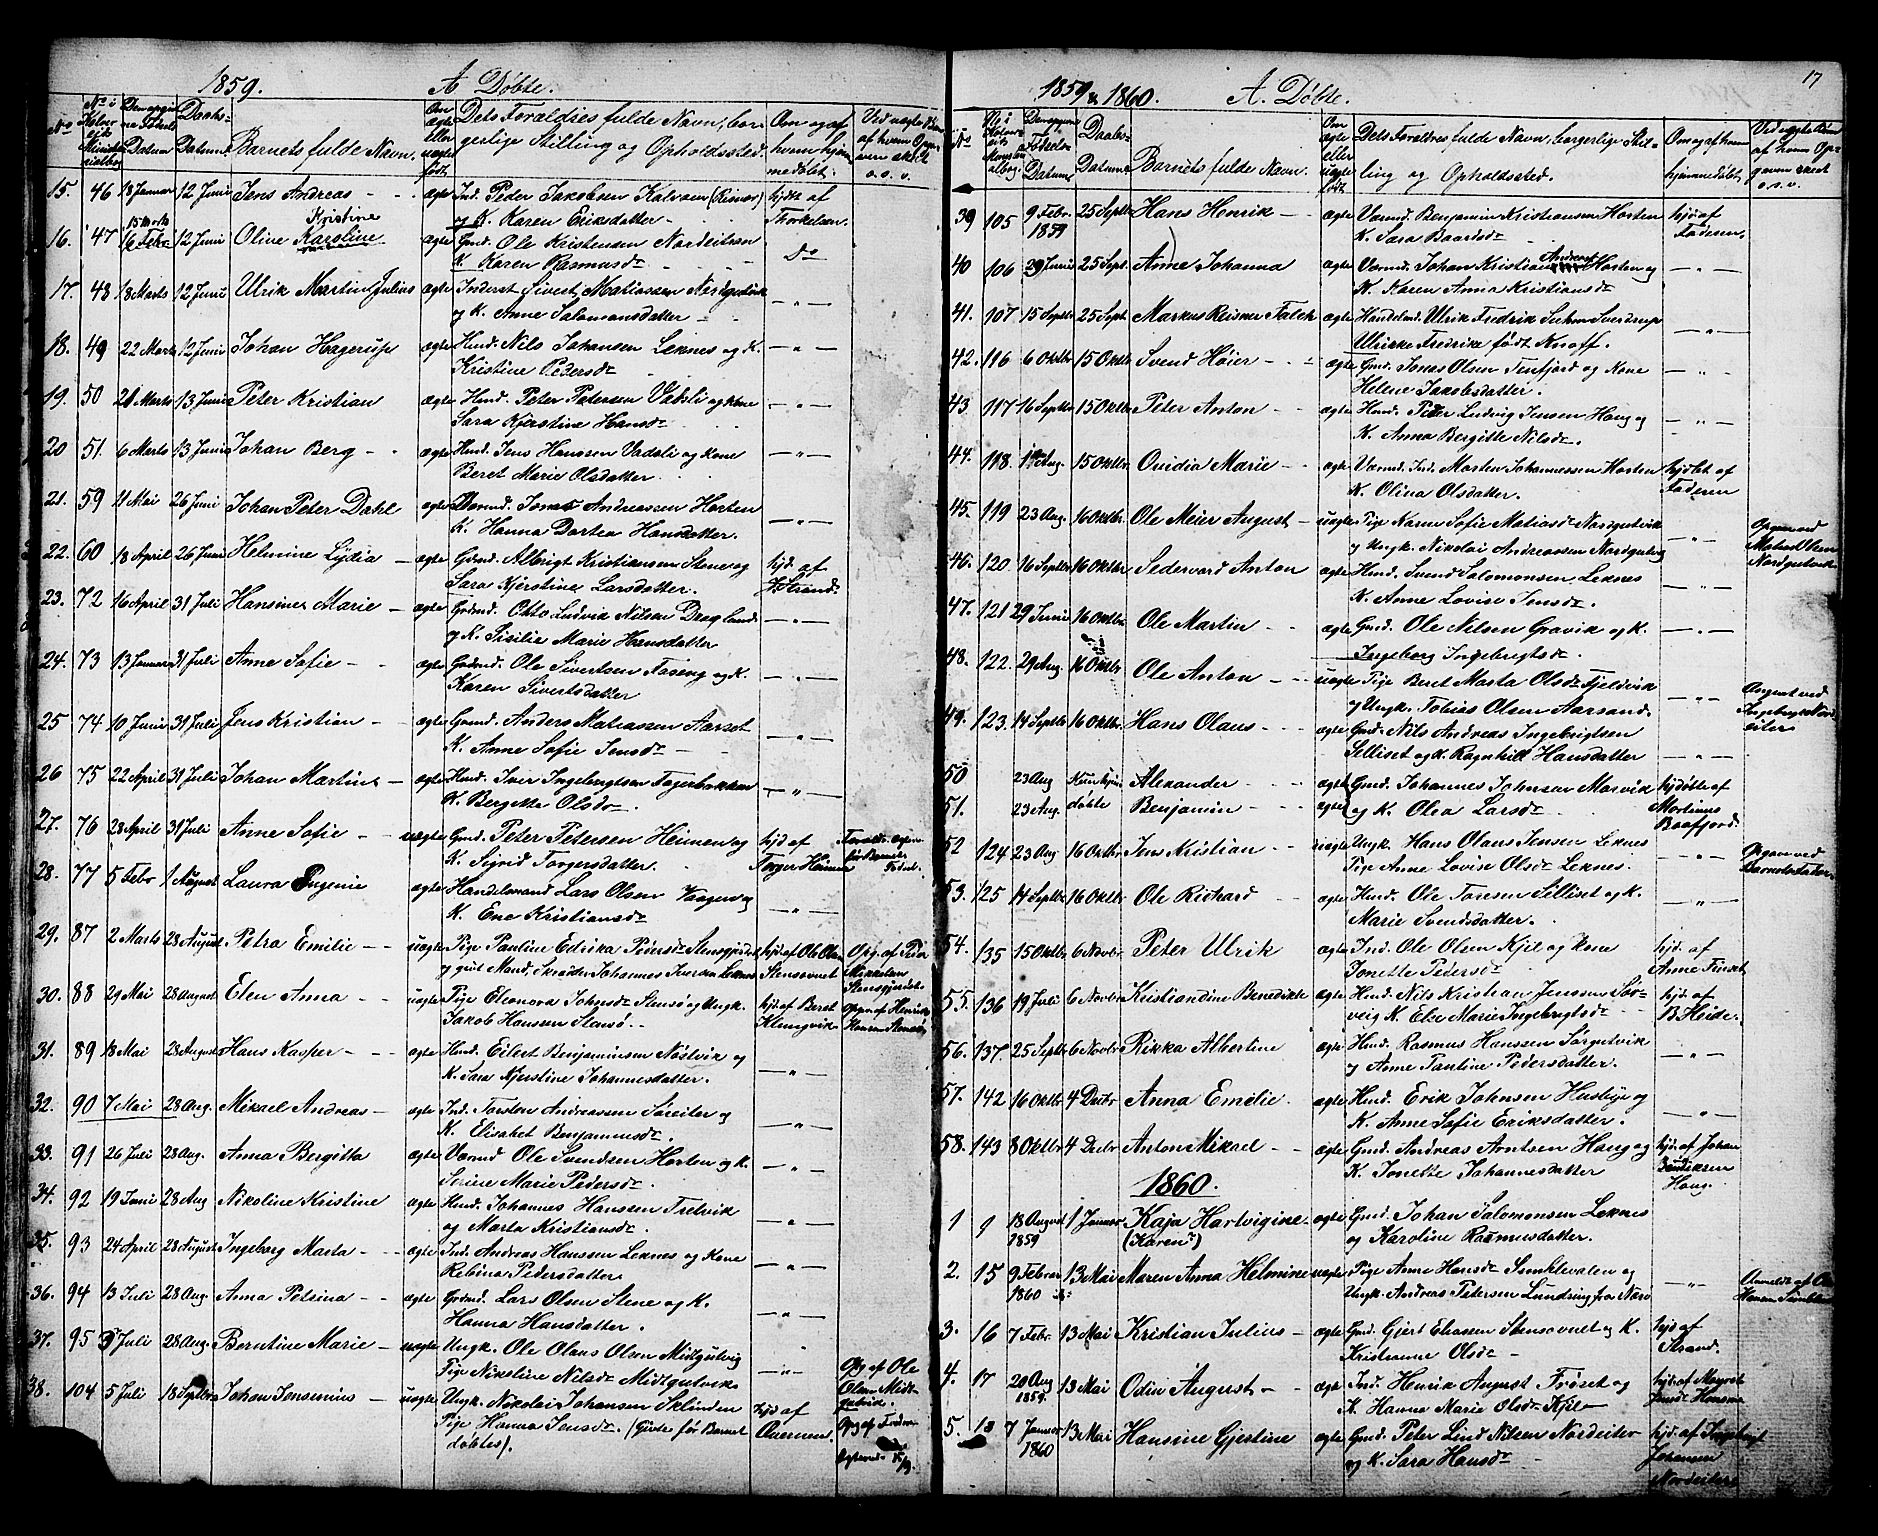 1859. A Döbte.
No No i Datum Daabs- Datum. Barnets fulde Navn. Om ægte eller uægte født Dets Forældres fulde Navn, bor- gerlige Stilling og Opholdssted. Om og af hvem hjem- medöbt. o. s. v.
15. 46 18 Januar 12 Juni Jens Andreas - - ægte Ind. Peder Jakobsen Kalvaen (Rismo) hjdt. af
og K. Karen Eriksdatter - Thorkelsen.
15 Marts Kristine
16. 47 16 Febr 12 Juni Oline Karoline ægte Gmd. Ole Kristensen Nordeitran
K. Karen Rasmusdr Do
17. 48 18 Marts 12 Juni Ulrik Martin Julius ægte Inderst Sivert Matiassen Nordgutvik
og K. Anne Salomonsdatter - -"-
18. 49 22 Marts 12 Juni Johan Hagerup ægte Husd. Nils Johansen Leknes og K. -"-
Kristine Pedersdr
19. 50 21 Marts 13 Juni Peter Kristian ægte Husd. Peter Petersen Vadsli og Kone -"-
Sara Kjerstine Hansdr
20 51. 6 Marts 13 Juni Johan Berg - - ægte Husd. Jens Hanssen Vadsli og Kone -"-
Beret Marie Olsdatter.
21. 59 11 Mai 26 Juni Johan Peter Dahl ægte Værmd. Jonas Andreassen Horten
K. Hanna Dortea Hansdatter. -"-
22. 60 18 April 26 Juni Helmine Lydia - ægte Gmd. Albrigt Kristiansen Stene og hjd. af
Sara Kjerstine Larsdatter. Strand.
23. 72 16 April 31 Juli Hansine Marie - ægte Grdmd. Otto Ludvik Nilsen Dragland
og K. Sisilie Marie Hansdatter -"-
24. 73 13 Januar 31 Juli Anne Sofie - - ægte Grdmd. Ole Sivertsen Faseng og K.
Karen Sivertsdatter -"-
25 74 10 Juni 31 Juli Jens Kristian - ægte Grmd. Anders Matiassen Aarset
K. Anne Sofie Jensdr - -"-
26 75 22 April 31 Juli Johan Martin - ægte Husd. Iver Ingebrigtsen Fagerbakken
K. Bergitte Olsdr -"-
27. 76 28 April 31 Juli Anne Sofie - - uægte Gmd. Peter Petersen Heimen og hjd af
K. Sigrid Torgersdatter. Torger Heimen
28. 77 5 Febr 1 August Laura Eugenie ægte Handelsmand Lars Olsen Vaagen og
K. Ene Kristiansdr -"-
29. 87 2 Marts 28 August Petra Emilie - - uægte Pige Pauline Edrika Pedersdr Stensgjerdet hjd. af Ole Olsen Opg. af Peder
og gift Mand, Skræder Johannes Iversen Leknes Stensovnet Mikkelsen Stensgjerdet
30. 88 21 Mai 28 August Elen Anna - uægte Pige Eleonora Johnsdr Stensö og Ungk. hjd. af Beret Opgv. af Henrik
Jakob Hanssen Stensö. Klungvik Hansen Stensö
31. 89 18 Mai 28 August Hans Kasper - - ægte Husd. Eilert Benjaminsen Nöstvik og
K. Sara Kjerstine Johannesdatter. -"-
32. 90 7 Mai 28 Aug. Mikael Andreas - ægte Ind. Torsten Andreassen Söreiter og
K. Elisabet Benjaminsdr. -"-
33. 91 26 Juli 28 Aug. Anna Bergitta ægte Værmd Ole Svendsen Horten og K.
Serine Marie Pedersdr. -"-
34. 92 19 Juni 28 Aug Nikoline Kristine ægte Husd. Johannes Hanssen Fretvik
og Marta Kristiansdr. -"-
35. 93 24 April 28 August Ingeborg Marta - - ægte Ind. Andreas Hanssen Leknes og Kone
Rebina Pedersdatter -"-
36. 94 13 Juli 28 Aug. Anna Petrina - ægte Grdmd. Lars Olsen Stene og K.
Hanna Hansdatter. -"-
37. 95 3 Juli 28 Aug. Berntine Marie - uægte Ungk. Ole Olaus Olsen Midtgutvig
Pige Nikoline Nilsdr Midtgutvik -"- Opg af Ole Olsen Midt- gutvik
38. 104 5 Juli 18 Septbr Johan Jensenius - uægte Ungk. Nikolai Johansen Sklinden hjd af
Pige Hanna Jensdr. (Givte för Barnet
döbtes).

17
1859 & 1860. A. Döbte.
No Datum Daabs- Datum Barnets fulde Navn ægte eller uægte født Dets Forældres fulde Navn, borgerlige Stil- ling og Opholdssted. Om og af hvem hjemmedöbt. Ved uægte Børn af hvem Op- given skeet o. s. v.
39 105 9 Febr. 1859 25 Septbr Hans Henrik - - ægte Værmd. Benjamin Kristiansen Horten hjd. af
K. Sara Baardsdr Faderen.
40 106 29 Juni 25 Sept. Anne Johanna ægte Værmd. Johan Kristian Andreas Horten og -"-
K. Karen Anna Kristiansdr
41. 107 15 Septbr 25 Sept. Markus Reisner Falch ægte Handelsmd. Ulrik Fredrik Suhm Sverdrup -"-
Ulrikke Fredrike født Knoff.
42. 116 6 Oktbr 15 Oktbr Svend Höier - - ægte Gmd. Jonas Olsen Tenfjord og Kone -"-
Helene Jakobsdatter.
43. 117 16 Septbr 15 Oktbr Peter Anton - - ægte Husd. Peter Ludvig Jensen Haug og
K. Anna Bergitte Nilsdr. -"-
44. 118. 1 Aug. 15 Oktbr Ovidia Marie - - ægte Værmd. Ind. Morten Johannessen Horten hjdöbt af
K. Olina Olsdatter. Faderen
45. 119 23 Aug. 16 Oktbr Ole Meier August - uægte Pige Karen Sofie Matiasdr Nordgutvik
og Ungk. Nikolai Andreassen Nordgutvig -"- Opgv. ved Matias Olsen Nordgutvik
46. 120 16 Septbr 16 Oktbr Sedervard Anton ægte Husd. Svend Salomonsen Leknes
K. Anne Lovise Jensdr. -"-
47. 121 29 Juni 16 Oktbr Ole Martin - - ægte Gmd. Ole Nilsen Gravik og K. -"-
Ingeborg Ingebrigtsdr.
48. 122. 29 Aug. 16 Oktbr Ole Anton - - uægte Pige Beret Marta Olsdr Fjeldvik
og Ungk. Tobias Olsen Aarsand. -"- Angivet ved
49. 123. 14 Septbr 16 Oktbr Hans Olaus - ægte Gmd. Nils Andreas Ingebrigtsen
Selliset og K. Ragnhild Hansdatter -"-
50 23 Aug Kun hjem Alexander - - ægte Gmd. Johannes Johnsen Marvik hjdöbte af
51. 23 Aug. döbte Benjamin - - ægte og K. Olea Larsdr. Mortinus Baafjord.
52 124 23 Aug 16 Oktbr Jens Kristian - - uægte Ungk. Hans Olaus Jensen Leknes
Pige Anne Lovise Olsdr Leknes. -"- Opgiv ved Barnets Fader.
53. 125 14 Septbr 16 Oktbr Ole Richard - ægte Husd. Ole Toresen Selliset og K.
Marie Svendsdatter. -"-
54. 135 15 Oktbr 6 Novbr Peter Ulrik ægte Ind. Ole Olsen Kjel og Kone hjd. af
Jonette Pedersdr
55. 136 19 Juli 6 Novbr Kristiandine Benedikte ægte Husd. Nils Kristian Jenssen Sör- hjd. af
veig K. Else Marie Ingebrigtsdr - B. Heide.
56. 137 25 Septbr 6 Novbr Rikka Albertine ægte Husd. Rasmus Hanssen Sörgutvik
og Anne Pauline Pedersdatter. -"-
57. 142 16 Oktbr 4 Decbr Anna Emelie. - ægte Husd. Erik Johnsen Husbye og
K. Anne Sofie Eriksdatter. -"-
58. 143 8 Oktbr 4 Decbr Anton Mikael - - ægte Gmd. Andreas Arntsen Haug og hjd. af Johan
K. Jonette Johannesdatter Bendiksen Haug.
1860.
1 1 18 August 1859 1 Januar Kaja Hartvigine - ægte Gmd. Johan Salomonsen Leknes
(Karen?) og Karoline Rasmusdatter.
2. 15 9 Februar 1860 13 Mai Maren Anna Helmine uægte Pige Anne Hansdr Simklevalen og
Ungk. Andreas Petersen Lundring fra Nærö -"-
3. 16 7 Febr. 13 Mai Kristian Julius - ægte Gmd. Gjert Eliassen Stensovnet og K. hjd af
Kristianne Olsdr - Strand.
4. 17 20 Aug 1859. 13 Mai Odin August - ægte Ind. Henrik August Fröset og
K. Hanna Marie Olsdr Kjel
5. 18 7 Januar 1860 13 Mai Hansine Gjertine ægte Gmd. Peter Lind Nilsen Nordeiter hjd. af Ingebrigt
og K. Sara Hansdr Johansen
Nordeiter